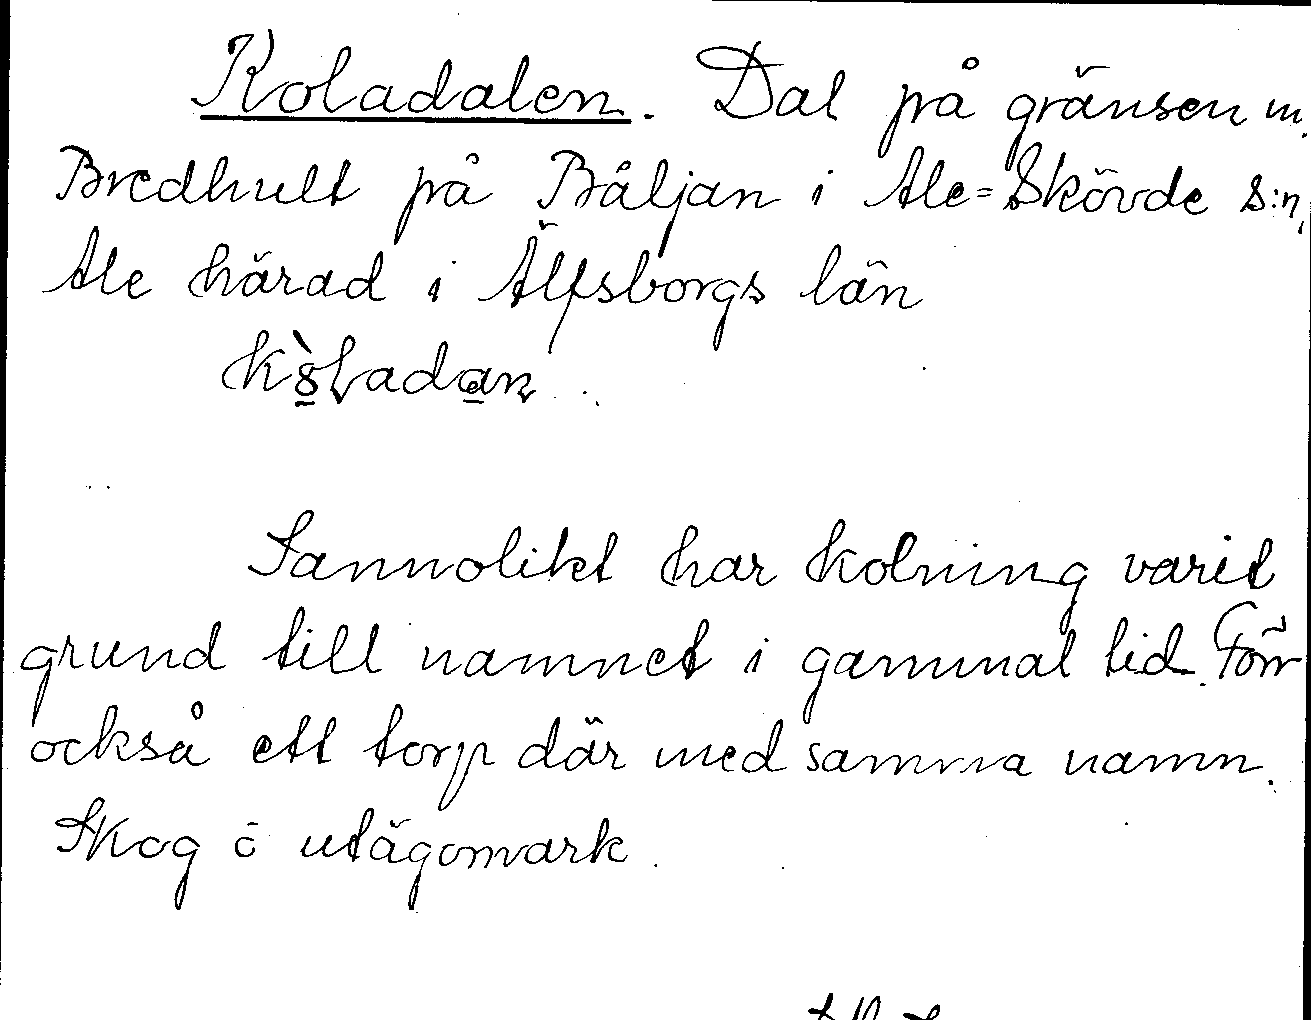 Koladalen. Dal på gränsen m.
Bredhult på Båljan i Ale=Skövde s:n,
Ale härad i Älfsborgs län
Sannolikt har kolning varit
grund till namnet i gammal tid. Förr
också ett torp där med samma namn.
Skog o utägomark.